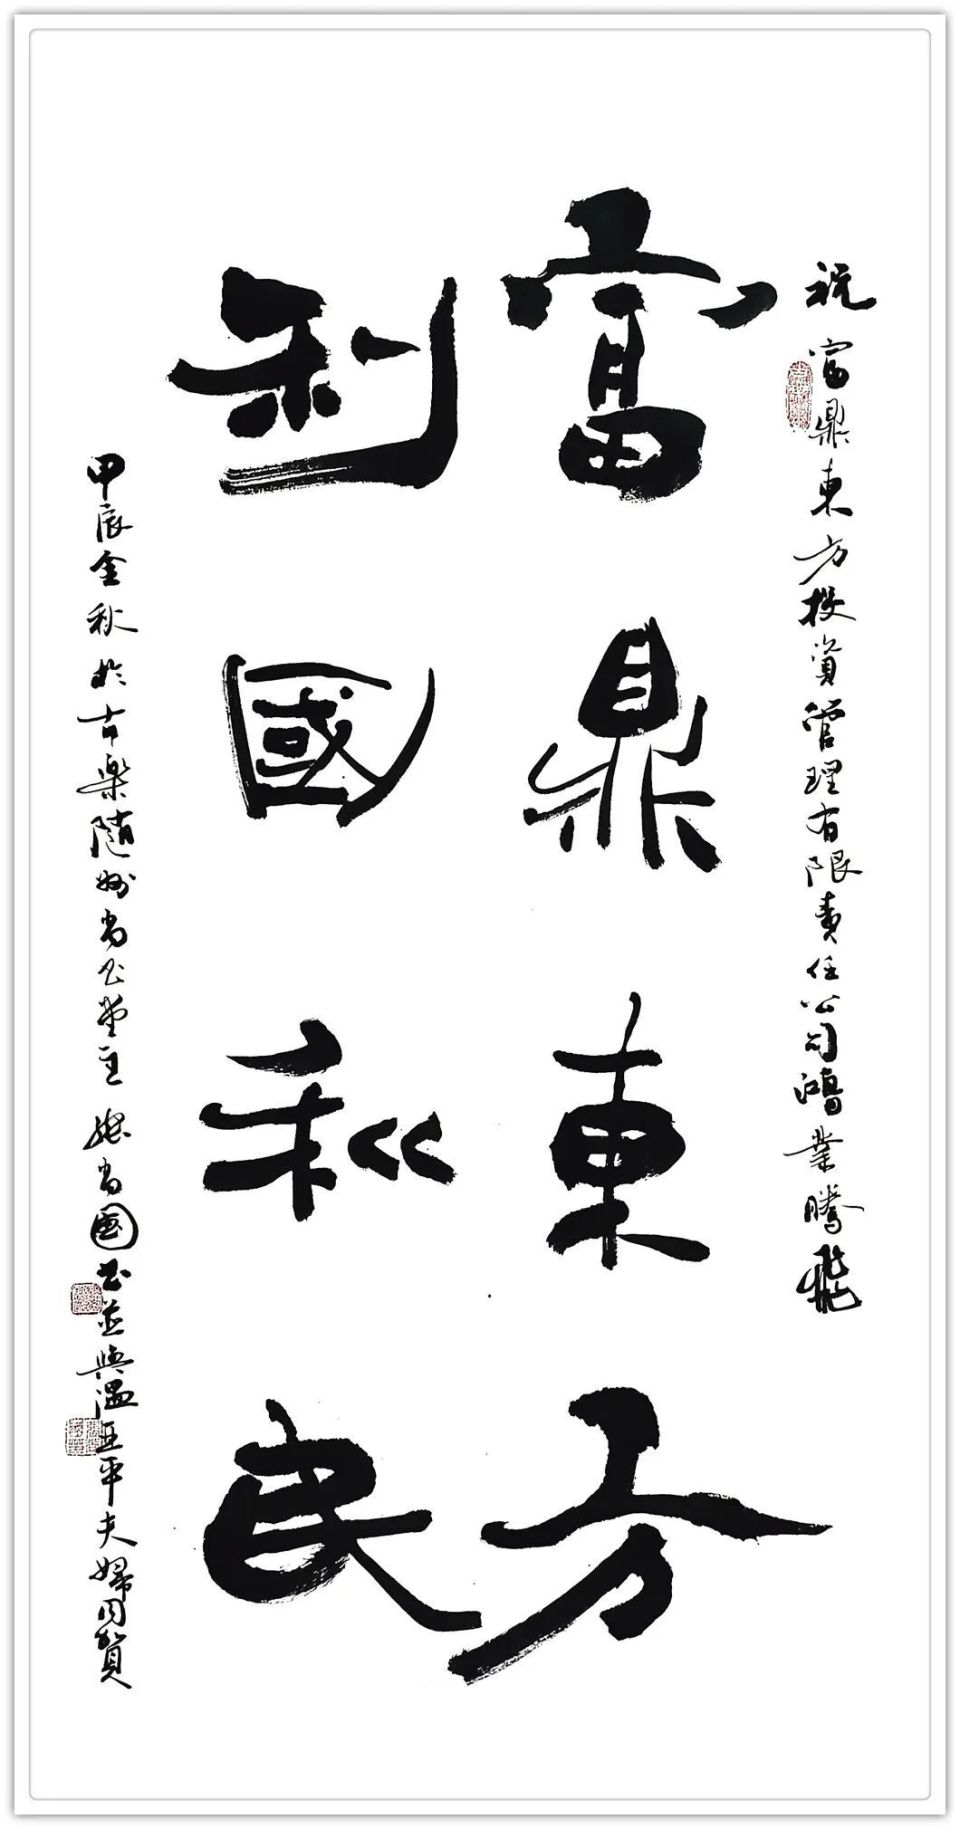 祝富鼎東方投資管理有限責任公司鴻業騰飛
富鼎東方
利國利民
甲辰金秋於古樂隨州尚書堂主張尚國书並與溫亞平夫婦同賀